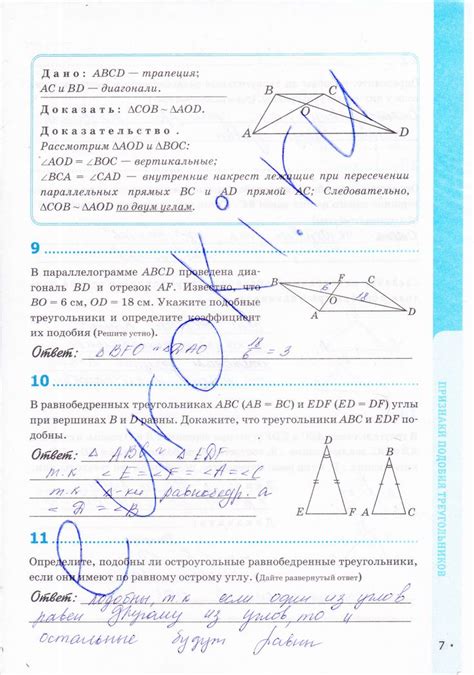 Дано: ABCD — трапеция;
AC и BD — диагонали.
Доказать: △COB ~ △AOD.
Доказательство.
Рассмотрим △AOD и △BOC:
∠AOD = ∠BOC — вертикальные;
∠BCA = ∠CAD — внутренние накрест лежащие при пересечении
параллельных прямых BC и AD прямой AC; Следовательно,
△COB ~ △AOD по двум углам.
B C
O
A D
9
В параллелограмме ABCD проведена диа-
гональ BD и отрезок AF. Известно, что
BO = 6 см, OD = 18 см. Укажите подобные
треугольники и определите коэффициент
их подобия (Решите устно).
B F C
6
O 18
A D
Ответ: △BFO ∾ △DAO 18/6 = 3
10
В равнобедренных треугольниках ABC (AB = BC) и EDF (ED = DF) углы
при вершинах B и D равны. Докажите, что треугольники ABC и EDF по-
добны.
Ответ: △ ABC ∾ △ EDF
т.к ∠E = ∠F = ∠A = ∠C
т.к △-ки равнобедр. а
∠D = ∠B
D B
E F A C
11
Определите, подобны ли остроугольные равнобедренные треугольники,
если они имеют по равному острому углу. (Дайте развернутый ответ)
Ответ: подобны, т.к если один из углов
равен другому из углов, то и
остальные будут равны
ПРИЗНАКИ ПОДОБИЯ ТРЕУГОЛЬНИКОВ
7 •